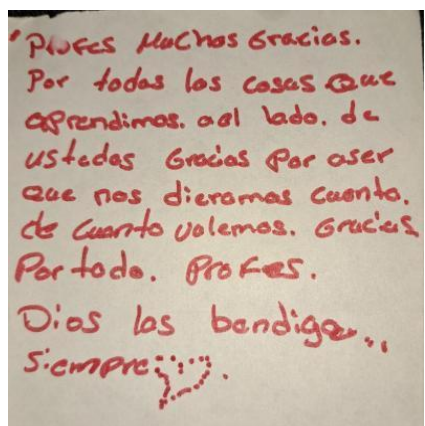 "Profes Muchas Gracias.
Por todas las cosas que
aprendimos. aal lado. de
ustedes Gracias por aser
que nos dieramos cuenta.
de cuanto valemos. Gracias
Por todo. Profes.
Dios los bendiga...
Siempre